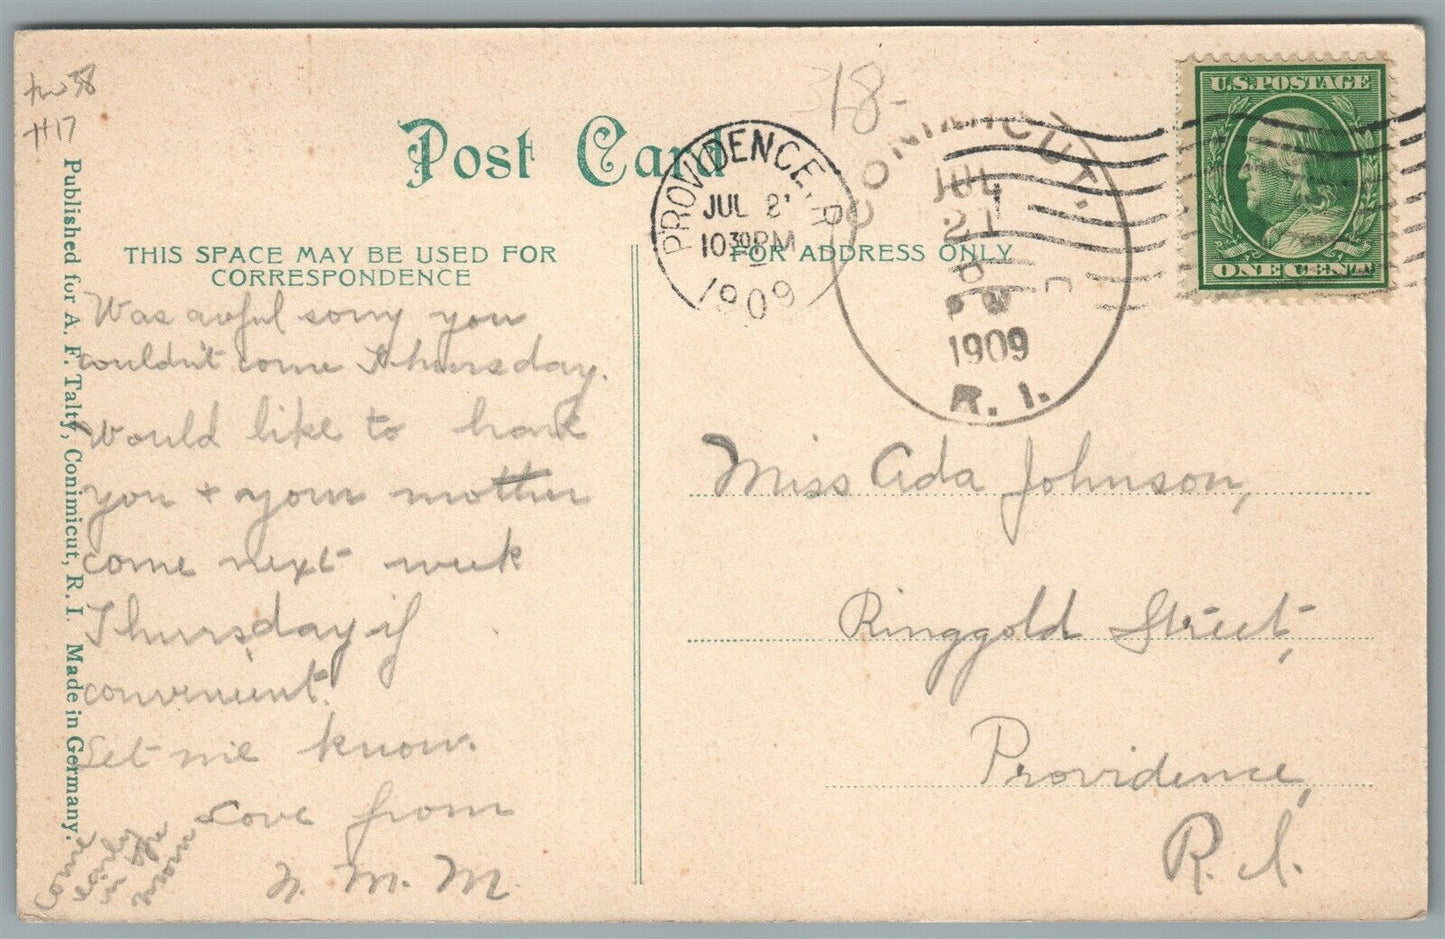 18-
#17
Post Card
THIS SPACE MAY BE USED FOR
CORRESPONDENCE
FOR ADDRESS ONLY
Published for A. F. Talty, Conimicut, R. I. Made in Germany.
PROVIDENCE, R
JUL 21
10 30 PM
1909
CONIMICUT,
JUL
21
P
1909
R. I.
U.S. POSTAGE
ONE CENT
Was awful sorry you
couldn't come Thursday.
Would like to have
you + your mother
come next week
Thursday if
convenient.
Let me know.
Love from
N. M. M.
Come
early
in the
morn
Miss Ada Johnson,
Ringgold Street,
Providence,
R. I.